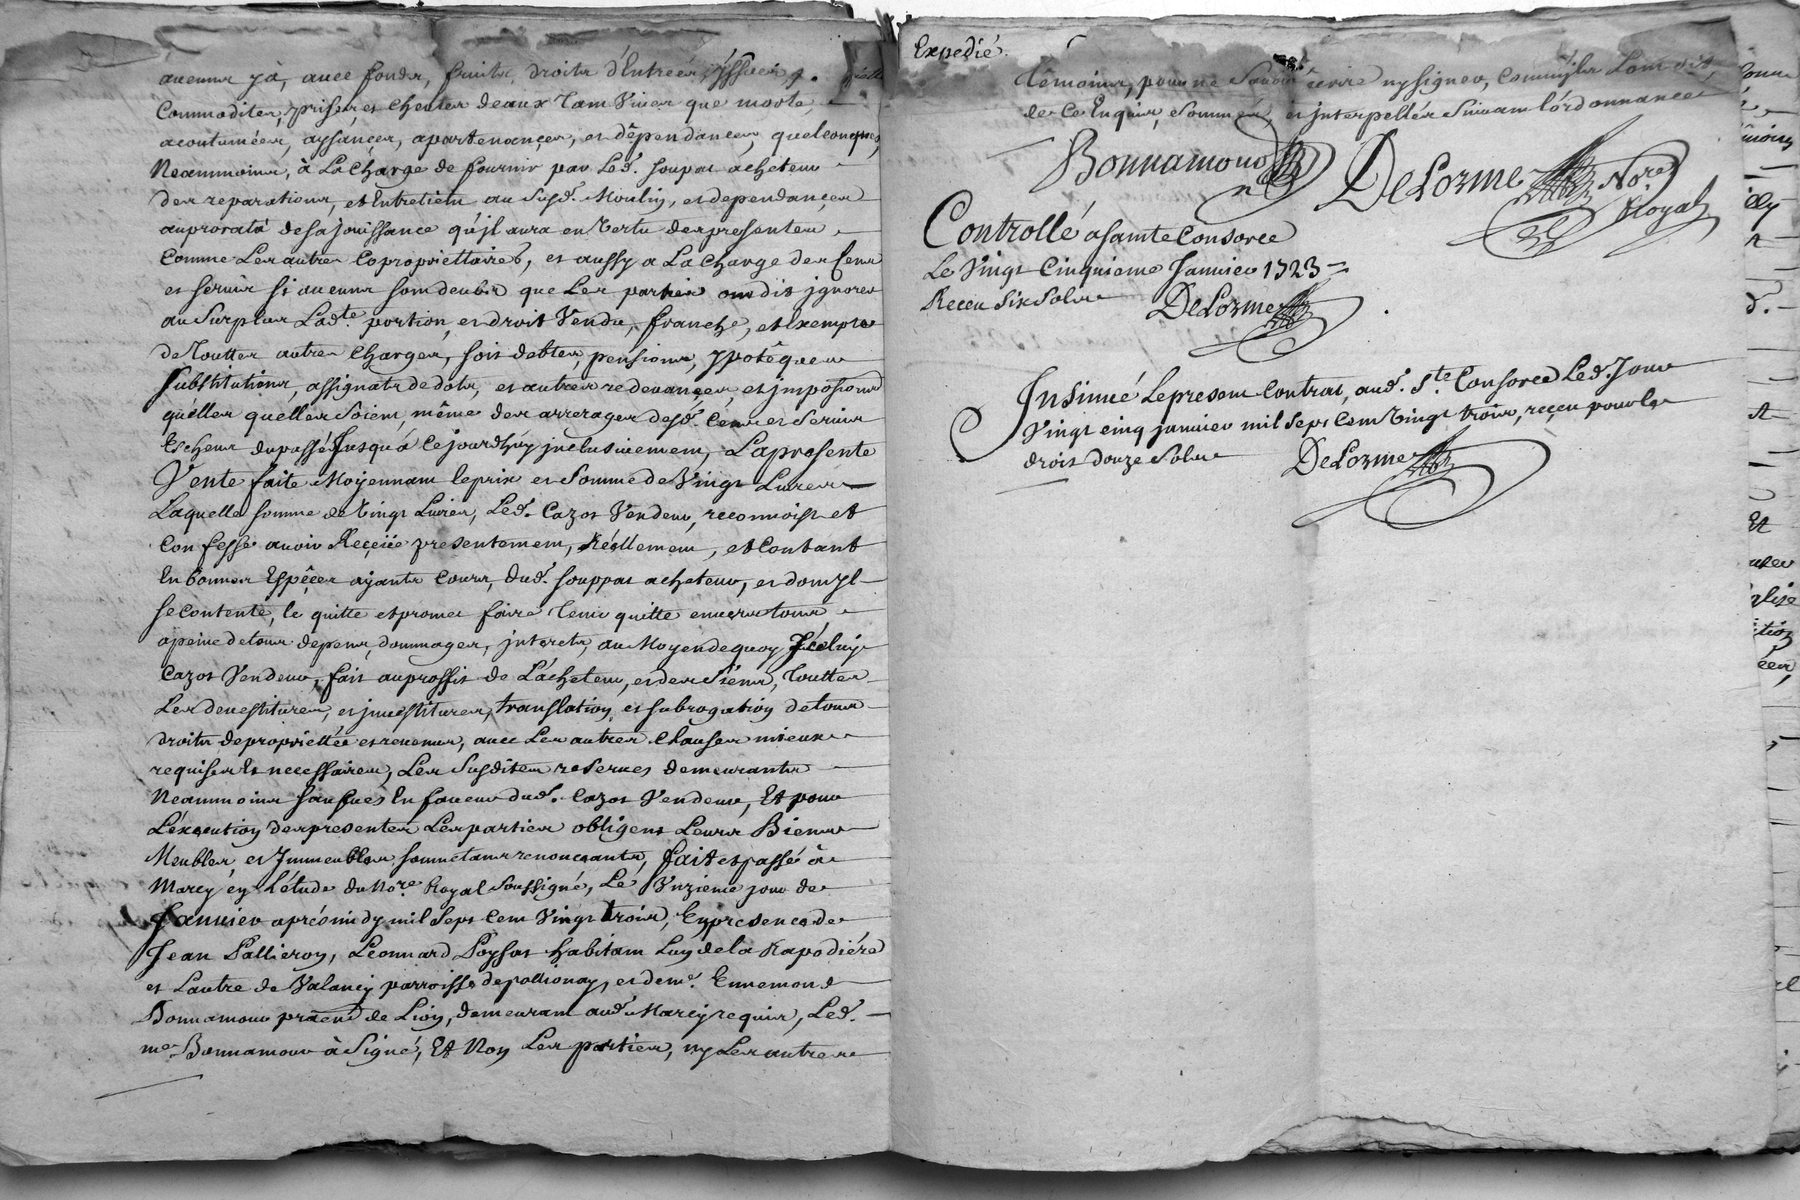 aucuns y à, avec fonds, fruits, droits d'Entrées, yssues,
Commodites, prises, et cheutes deaux tam Vives que morte,
acoutumées, aysances, apartenances, et dépendances, quelconques,
Neammoins, à La Charge de fournir par Led. soupat acheteur
des reparations, et Entretiem au Susd. Moulin, et dependances
auprorata de sa jouissance qu'jl aura en Vertu des presentes
Comme Les autres Coproprièttaires, et aussy a La Charge des Cens
et servis si aucuns som deubs que Les parties om dit jgnorer
au Surplus Ladte. portion, et droit Vendu, franche, et Exempte
de Touttes autres Charges, soit debtes, pensions, ypotêques
substitutions, assignats de dots, et autres redevances, et jmpositions
qu'elles quelles Soiem, même des arrerages desd. Cens et Servis
Escheus du passé Jusqu'à Cejourdhuy jnclusivemem, La presente
Vente faite Moyennam le prix et Somme de Vingt Livres
Laquelle somme de Vingt Livres, Led. Cazot Vendeur, reconnoist et
Confesse avoir Reçeüe presentemem, Réellemem, et Contant
En bonnes Espêces ayants Cours, dud. souppat acheteur, et dom jl
se contente, le quitte et promet faire tenir quitte envers tous
a peine de tous dépens, dommages, jnterets, au Moyen de quoy Jcéluy
Cazot Vendeur, fait au proffit de L'acheteur, et des Siens, Touttes
Les devestitures, et jnvestitures, translation, et subrogation de tous
droits de propriettée et revenus, avec Les autres Clauses mieux
requises Et necessaires, Les Susdites reserves demeurants
Neammoins sauves En faveur dud. Cazot Vendeur, Et pour
L'éxecution des presentes Les parties obligent Leurs Biens
Meubles, et Jmmeubles soumettans renonçants, fait et passé à
Marcy en L'étude du Nore. Royal Soussigné, Le Vnzieme jour de
Janvier aprésmidy mil Sept Cem Vingt trois, En presence de
Jean Pallieron, Leonnard Poysat habitam Luy de la Rapodiére
et Lautre de Valancy parroisse de pollionay, et deme. Ennemond
Bonnamour praen de Lion, demeuram aud. Marcy requis, Led.
me. Bonnamour à Signé, Et Non Les parties, ny Les autres
Expedié.
têmoins, pour ne Savoir écrire ny signer, Comm'jls L'om dit,
de Ce Enquis, Sommés, et jnterpellés Suivam l'órdonnance
Bonnamour
DeLorme Nore
Royal
Controllé a Sainte Consorce
Le Vingt Cinquieme Janvier 1723
Receu Six Sols
DeLorme
Jnsinué Le presem Contrat, aud. Ste. Consorce Led. Jour
Vingt cinq janvier mil Sept Cem Vingt trois, reçeu pour Le
droit douze Sols
DeLorme